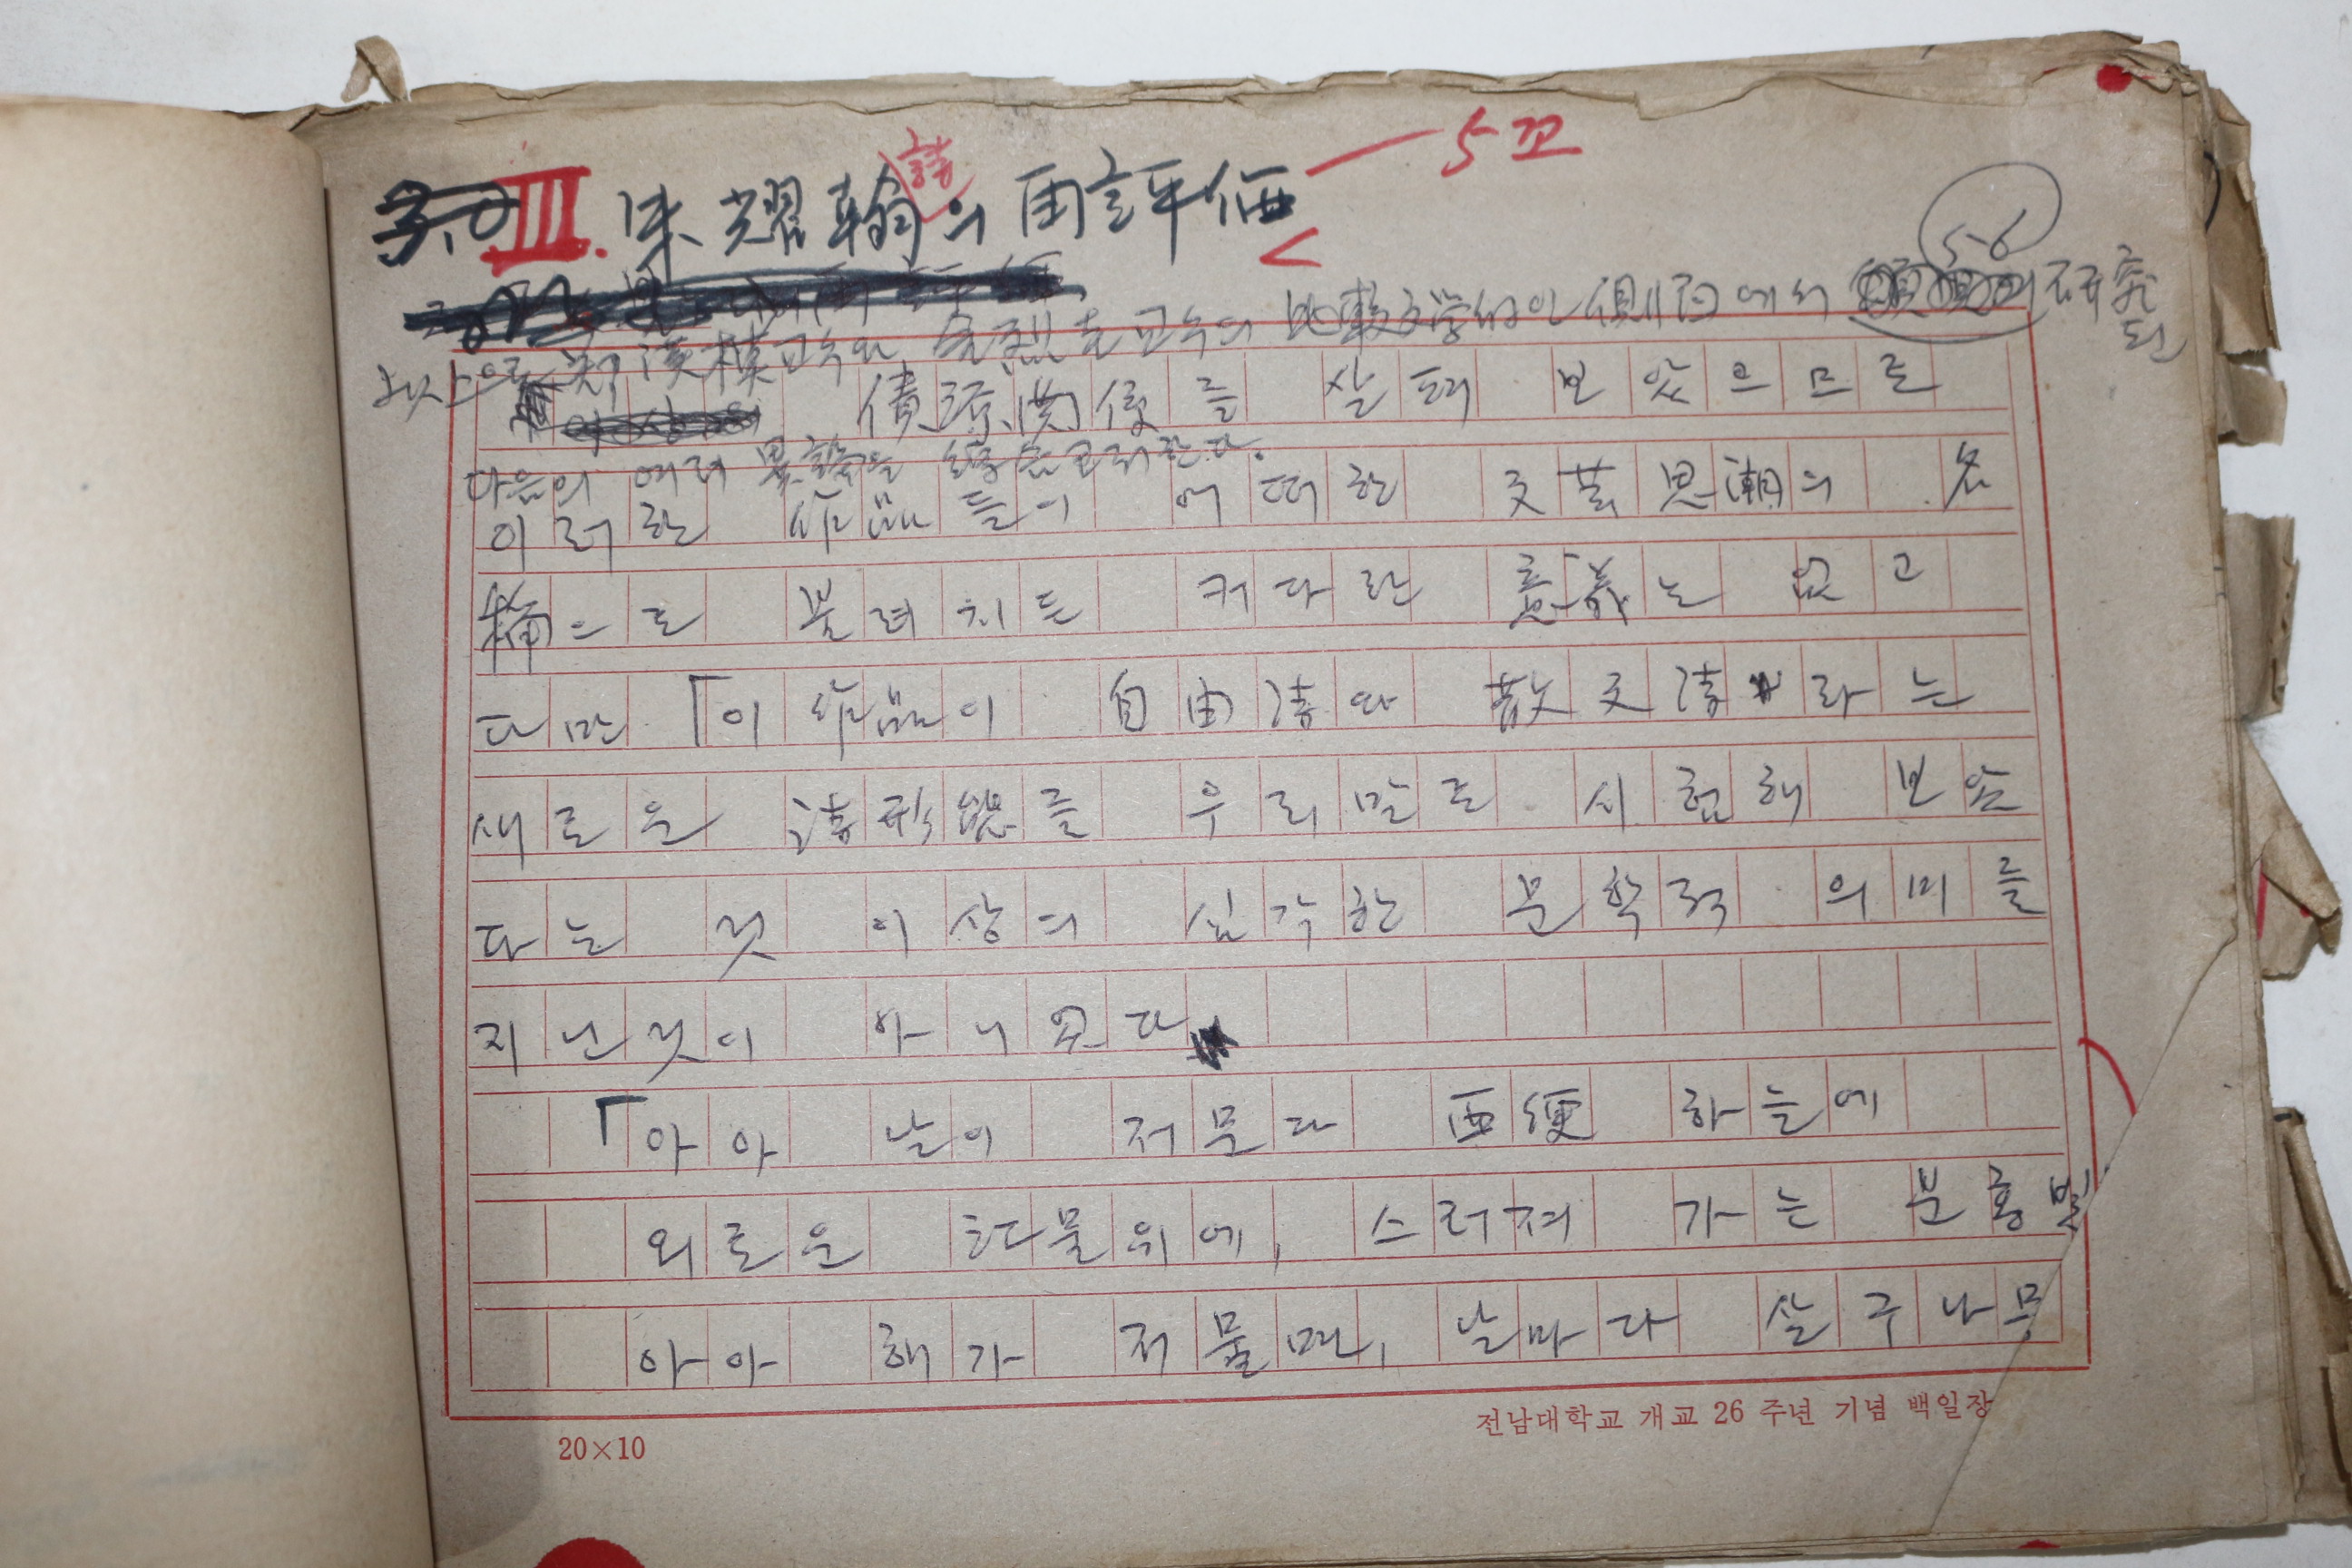 III. 朱耀翰 詩의 再評価
5꼬
5-6
이상으로 鄭漢模교수와 교수의 比較文学的인 側面에서 研究된
債務関係를 살펴 보았으므로
다음의 여러 異論을 한다.
이러한 作品들이 어떠한 文芸思潮의 名
稱으로 불려지든 커다란 意義는 없고
다만 「이 作品이 自由詩와 散文詩라는
새로운 詩形態를 우리말로 시험해 보았
다는 것 이상의 심각한 문학적 의미를
지닌것이 아니었다
「아아 날이 저문다 西便 하늘에
외로운 江물위에, 스러져 가는 분홍빛
아아 해가 저물면, 날마다 살구나무
20×10
전남대학교 개교 26 주년 기념 백일장